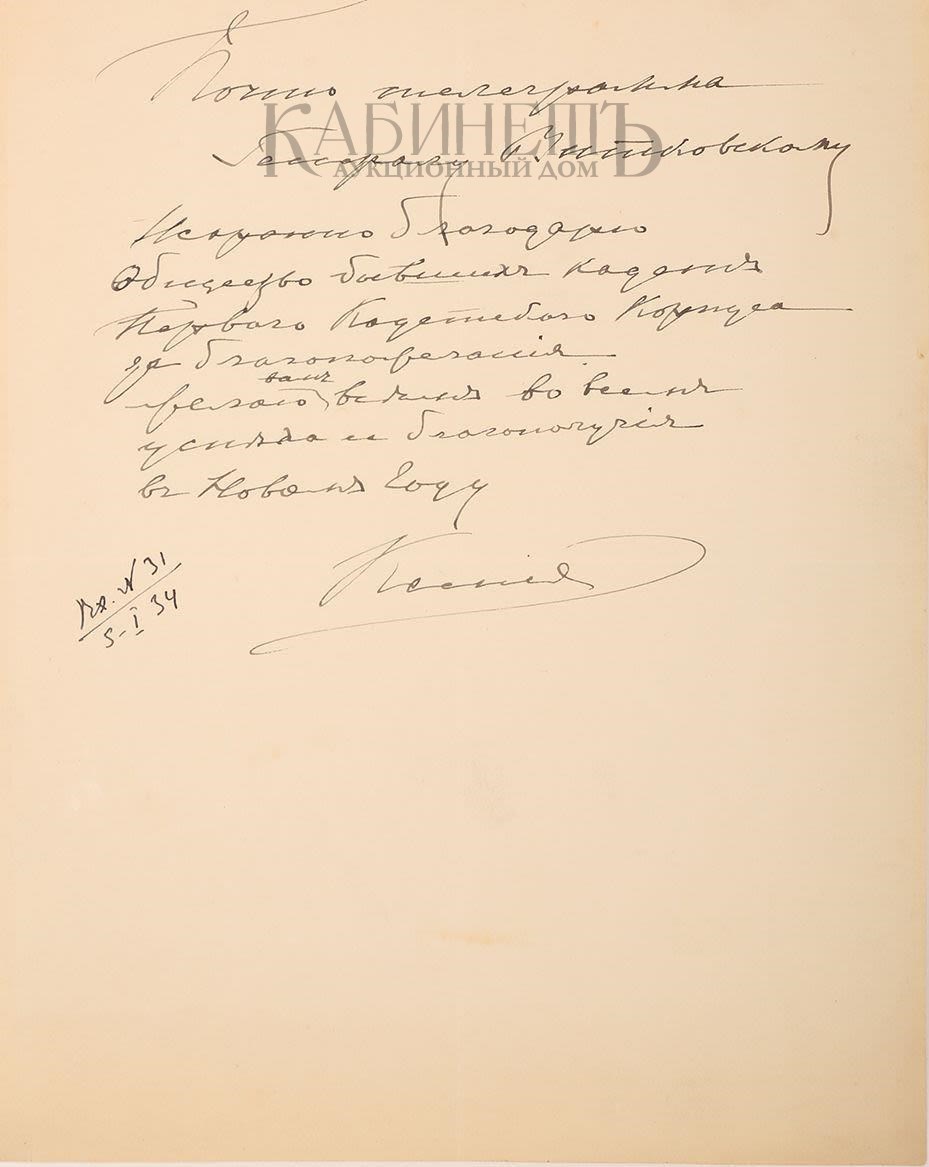 Почто телеграмма
КАБИНЕТЪ
АУКЦИОННЫЙ ДОМ
Генералу Витковскому
Искренно благодарю
Общество бывшихъ кадетъ
Перваго Кадетского Корпуса
за благопожелания
желаю вамъ всѣмъ во всемъ
успѣха и благополучія
въ Новомъ Году
Ксенія
Вх. № 31
5-I 34